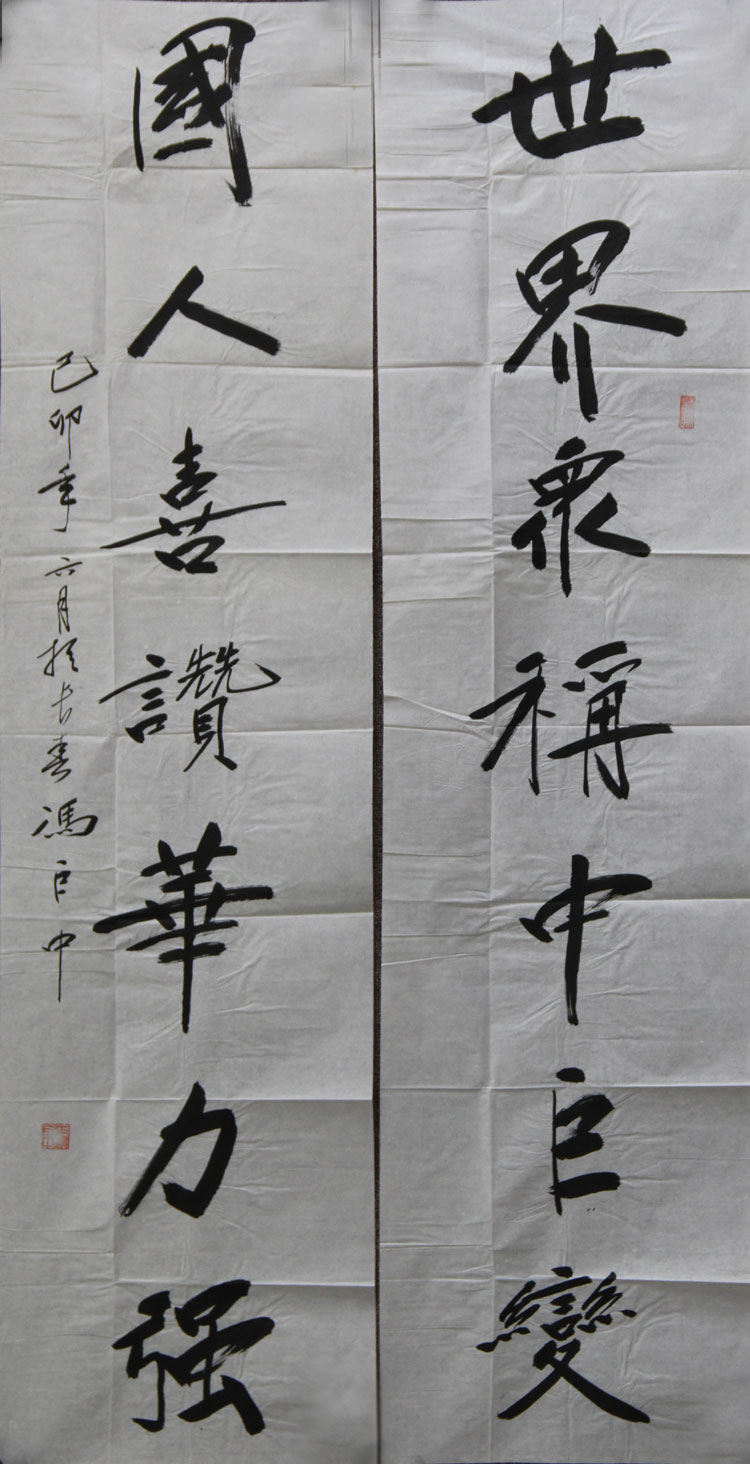 世界衆稱中巨變
國人喜讚華力强
己卯年六月於长春馮巨中